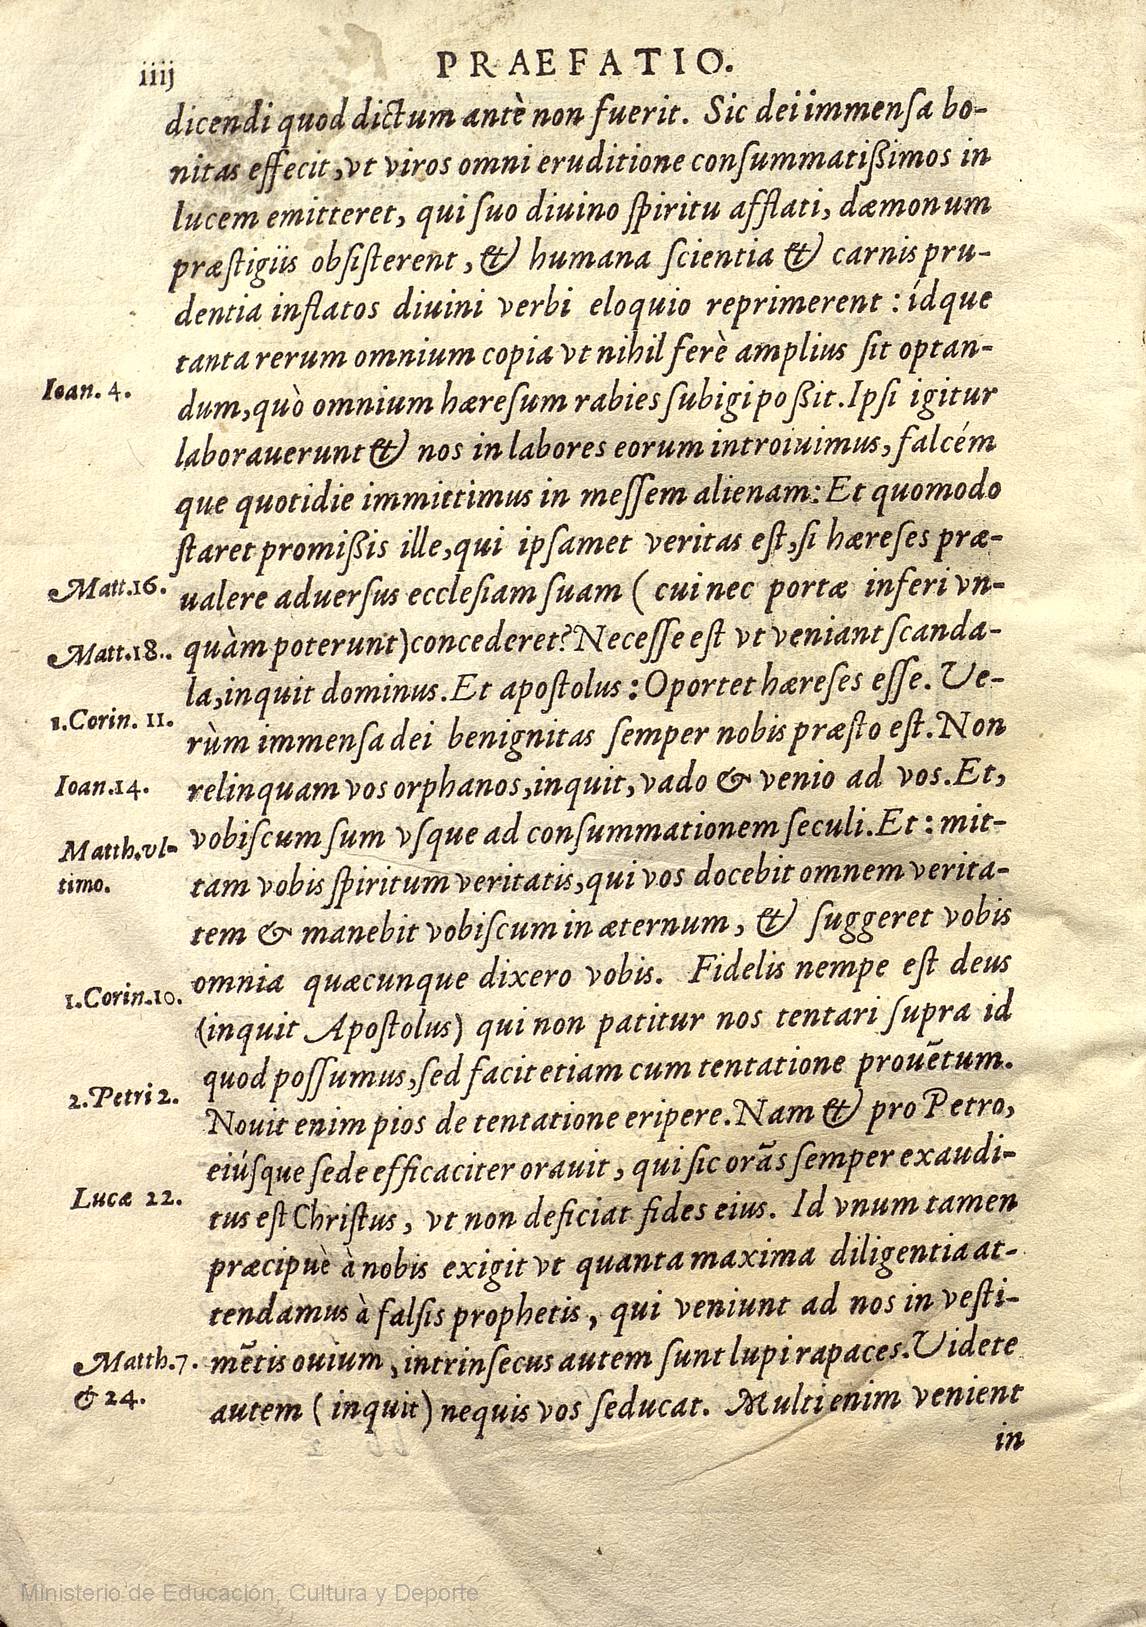 iiij
PRAEFATIO.
dicendi quod dictum antè non fuerit. Sic dei immenſa bo-
nitas effecit, vt viros omni eruditione conſummatiſſimos in
lucem emitteret, qui ſuo diuino ſpiritu afflati, dæmonum
præſtigiis obſiſterent, & humana ſcientia & carnis pru-
dentia inflatos diuini verbi eloquio reprimerent : ídque
tanta rerum omnium copia vt nihil ferè amplius ſit optan-
Ioan. 4.
dum, quò omnium hæreſum rabies ſubigi poßit. Ipſi igitur
laborauerunt & nos in labores eorum introiuimus, falcém
que quotidie immittimus in meſſem alienam: Et quomodo
ſtaret promißis ille, qui ipſamet veritas eſt, ſi hæreſes præ-
Matt.16.
ualere aduerſus eccleſiam ſuam ( cui nec portæ inferi vn-
Matt.18.
quàm poterunt) concederet? Neceſſe eſt vt veniant ſcanda-
la, inquit dominus. Et apoſtolus : Oportet hæreſes eſſe. Ve-
1.Corin. 11.
rùm immenſa dei benignitas ſemper nobis præſto eſt. Non
Ioan.14.
relinquam vos orphanos, inquit, vado & venio ad vos. Et,
Matth.vl-
timo.
vobiſcum ſum vſque ad conſummationem ſeculi. Et : mit-
tam vobis ſpiritum veritatis, qui vos docebit omnem verita-
tem & manebit vobiſcum in æternum, & ſuggeret vobis
omnia quæcunque dixero vobis. Fidelis nempe eſt deus
1.Corin.10.
(inquit Apoſtolus) qui non patitur nos tentari ſupra id
quod poſſumus, ſed facit etiam cum tentatione prouẽtum.
2.Petri 2.
Nouit enim pios de tentatione eripere. Nam & pro Petro,
eiúſque ſede efficaciter orauit, qui ſic orãs ſemper exaudi-
Lucæ 22.
tus eſt Chriſtus, vt non deficiat fides eius. Id vnum tamen
præcipuè à nobis exigit vt quanta maxima diligentia at-
tendamus à falſis prophetis, qui veniunt ad nos in veſti-
Matth.7.
& 24.
mẽtis ouium, intrinſecus autem ſunt lupi rapaces. Videte
autem ( inquit) nequis vos ſeducat. Multi enim venient
in
Ministerio de Educación, Cultura y Deporte